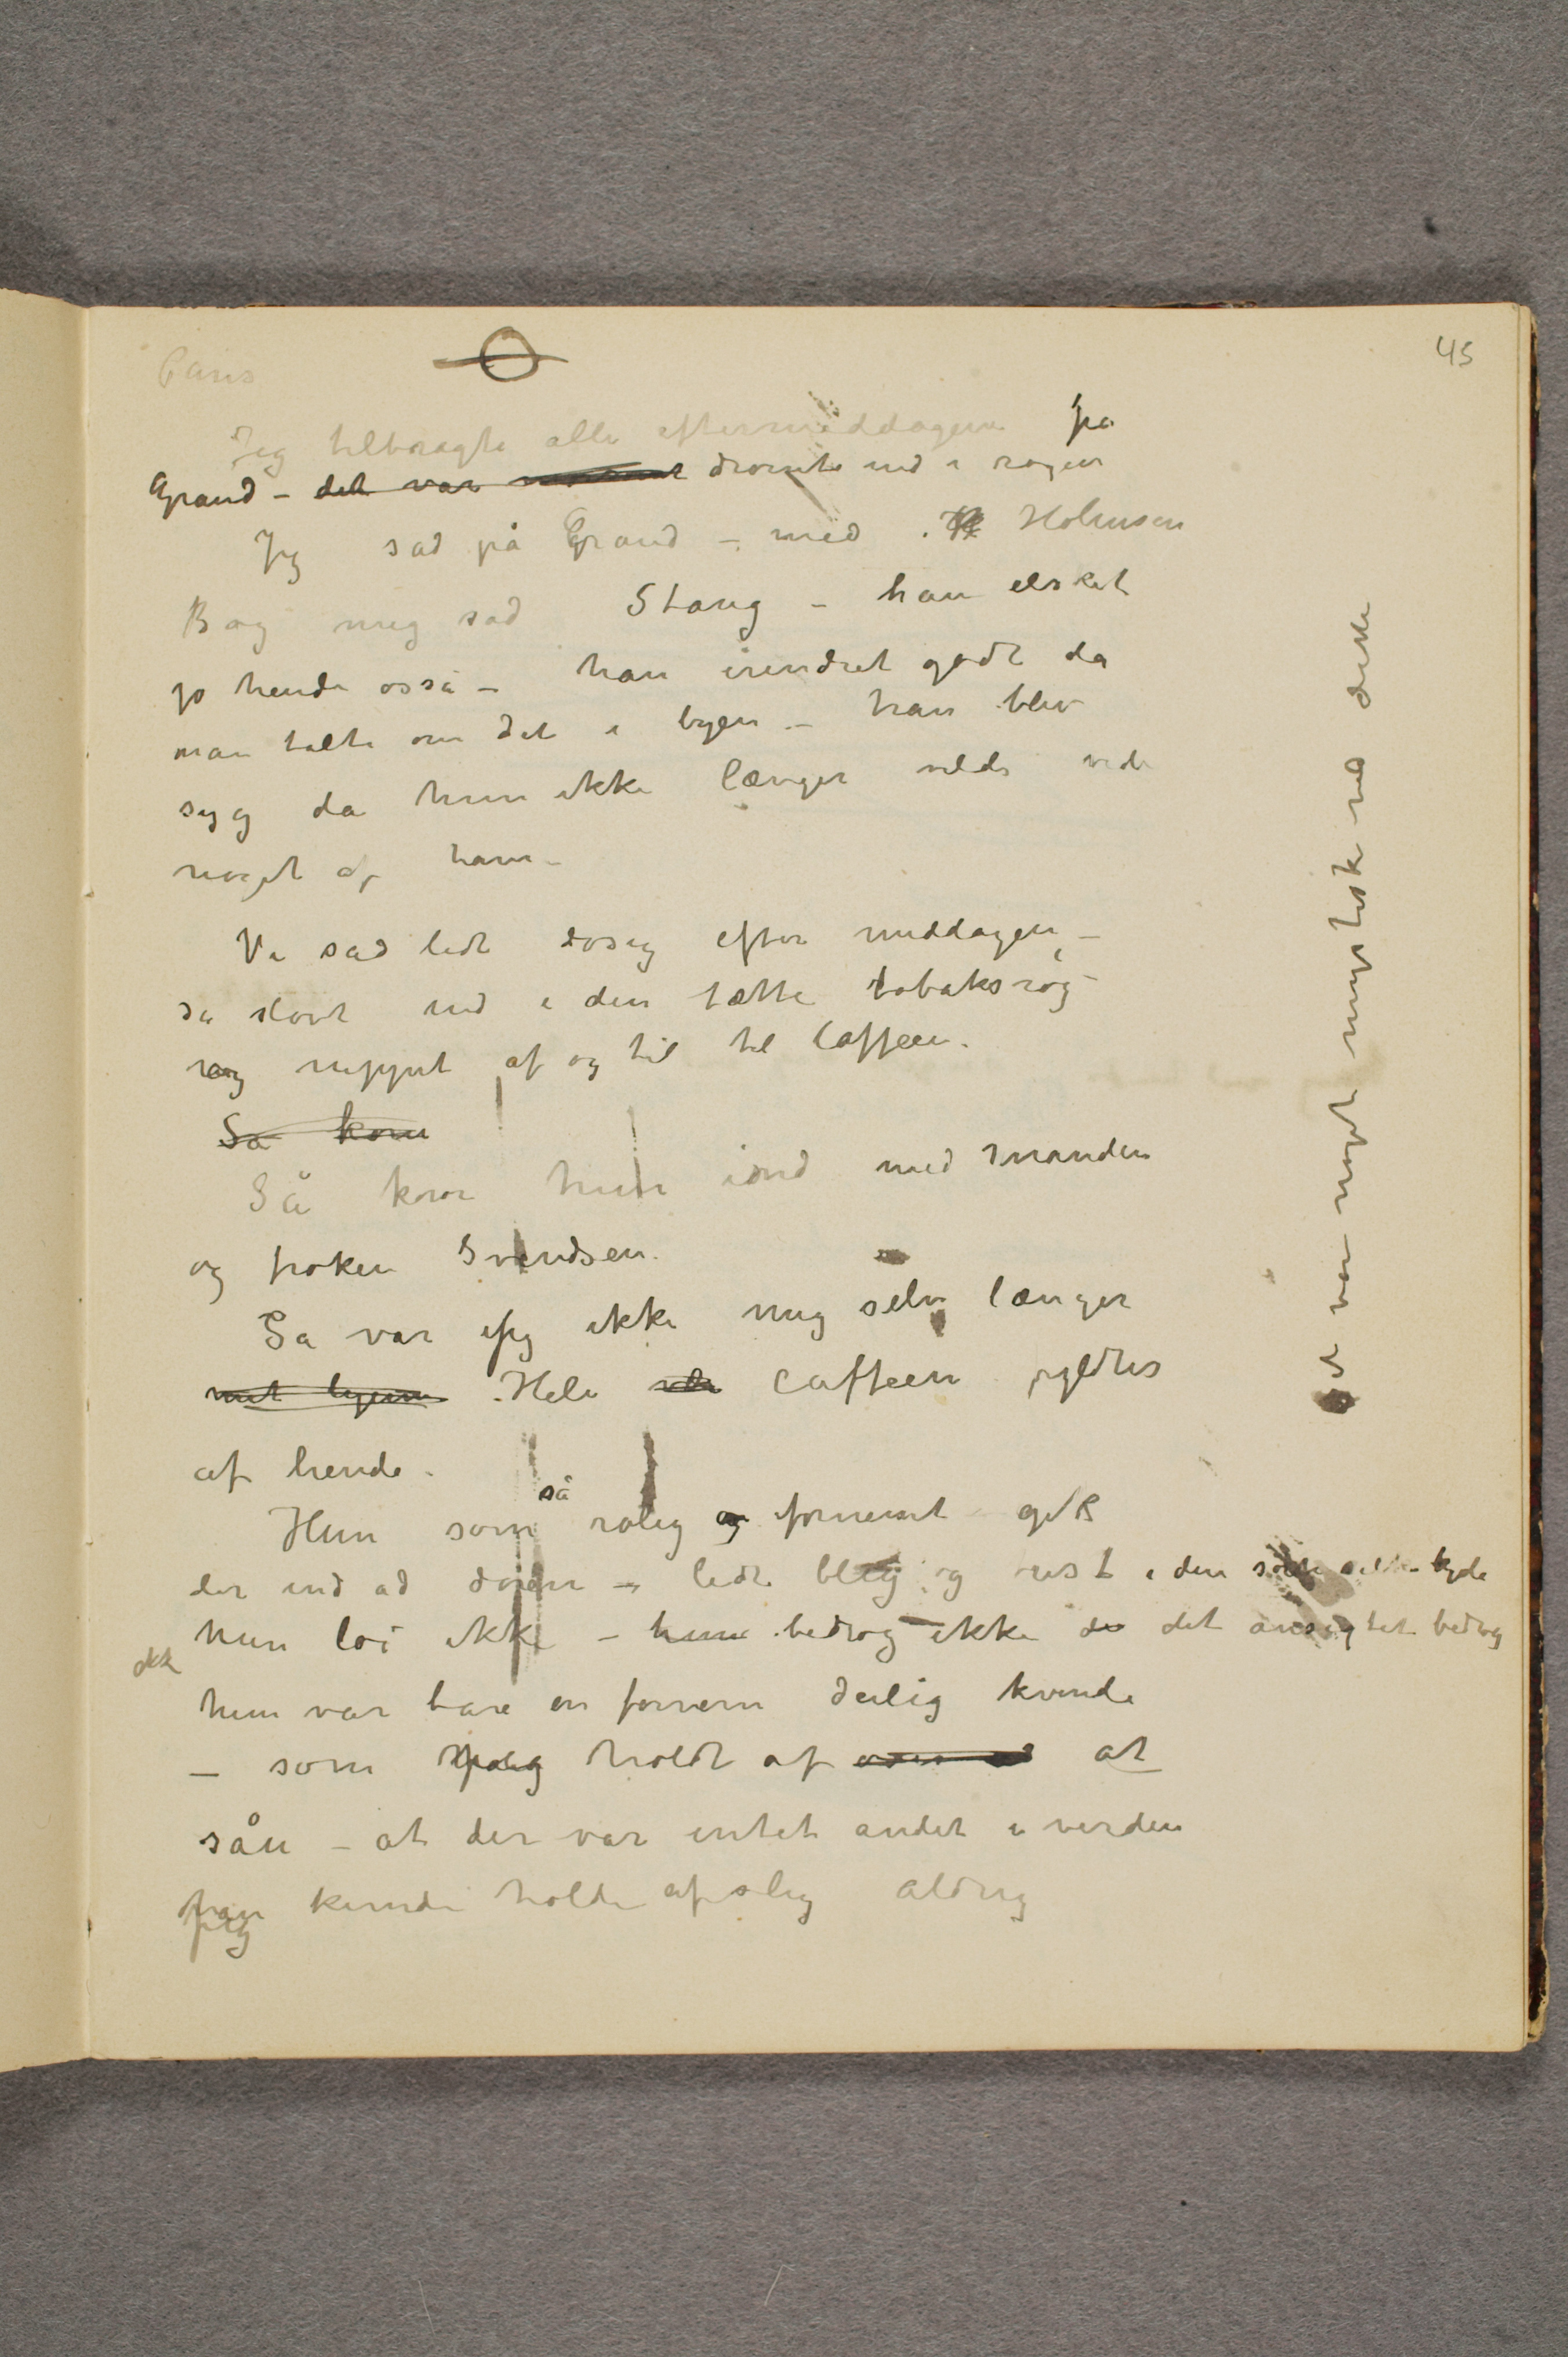 Paris
45
Jeg tilbragte alle eftermiddagene på
Grand – det var drømte ind i røgen
Jeg sad på Grand – med Holmsen
Bag mig sad Stang – han elsket
jo hende osså – han erindret godt da
man talte om det i byen – han blev
syg da hun ikke længer vilde vide
noget af ham –
Vi sad lidt døsig efter middagen –
så sløvt ind i den tætte tobaksrøg –
og nippet af og til til Caffeen.
Så kom
Så kom hun ind med manden
og frøken Svendsen.
Så var jeg ikke mig selv længer
mit legeme Hele caffeen fyldtes
af hende.
Hun som så rolig og fornemt gik
der ind ad døren – lidt bleg og træt i den sorte kjole
hun løi ikke – hun bedrog ikke det ansigtet bedrog
ikke
hun var bare en fornem deilig kvinde
– som holdt af at
sån – at der var intet andet i verden
kunde holde af slig aldrig
Det var noget mystisk ved dette